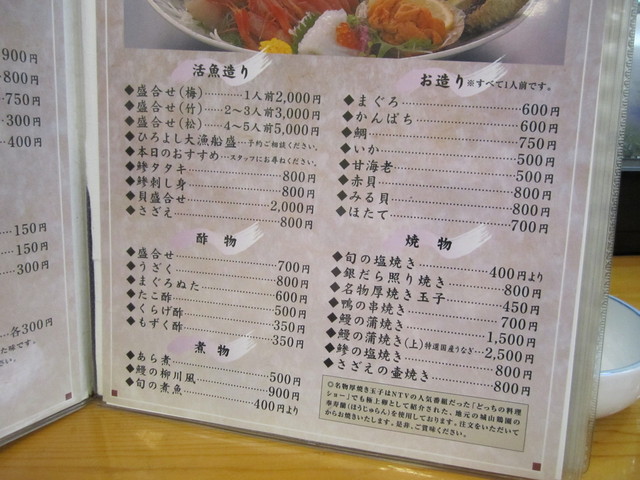 900円
800円
750円
300円
400円
150円
150円
300円
各300円
活魚造り
◆盛合せ(梅)…………1人前2,000円
◆盛合せ(竹)……2〜3人前3,000円
◆盛合せ(松)……4〜5人前5,000円
◆ひろよし大漁船盛…予約ご相談ください。
◆本日のおすすめ…スタッフにお尋ねください。
◆鯵タタキ…………800円
◆鯵刺し身…………800円
◆貝盛合せ…………2,000円
◆さざえ…………800円
酢物
◆盛合せ…………700円
◆うざく…………800円
◆まぐろぬた…………600円
◆たこ酢…………500円
◆くらげ酢…………350円
◆もずく酢…………350円
煮物
◆あら煮…………500円
◆鰻の柳川風…………900円
◆旬の煮魚…………400円より
お造り※すべて1人前です。
◆まぐろ…………600円
◆かんぱち…………600円
◆鯛…………750円
◆いか…………500円
◆甘海老…………500円
◆赤貝…………800円
◆みる貝…………800円
◆ほたて…………700円
焼物
◆旬の塩焼き…………400円より
◆銀だら照り焼き…………800円
◆名物厚焼き玉子…………450円
◆鴨の串焼き…………700円
◆鰻の蒲焼き…………1,500円
◆鰻の蒲焼き(上)特選国産うなぎ…2,500円
◆鯵の塩焼き…………800円
◆さざえの壷焼き…………800円
◎名物厚焼き玉子はNTVの人気番組だった「どっちの料理
ショー」でも極上卵として紹介された、地元の城山鶏園の
奉寿卵(ほうじゅらん)を使用しております。注文をいただいて
からお焼きいたします。是非、ご賞味ください。